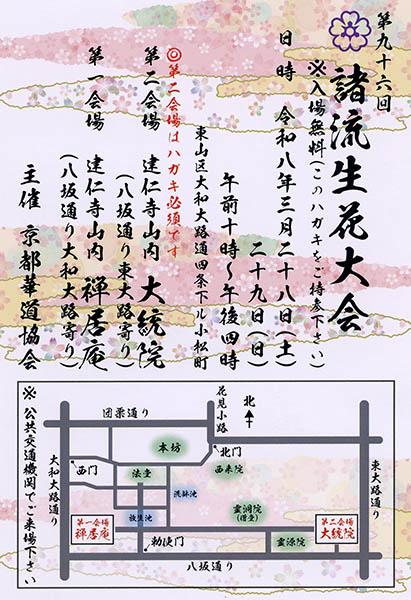 第九十六回
諸流生花大会
※入場無料(このハガキをご持参下さい)
日時 令和八年三月二十八日(土)
二十九日(日)
午前十時〜午後四時
東山区大和大路通四条下ル小松町
◎第二会場はハガキ必須です
第二会場 建仁寺山内 大統院
(八坂通り東大路寄り)
第一会場 建仁寺山内 禅居庵
(八坂通り大和大路寄り)
主催 京都華道協会
※公共交通機関でご来場下さい
団栗通り
花見小路
北
本坊
北門
西来院
西門
法堂
洗鉢池
大和大路通り
東大路通り
放生池
霊洞院
(僧堂)
第一会場
禅居庵
勅使門
霊源院
第二会場
大統院
八坂通り